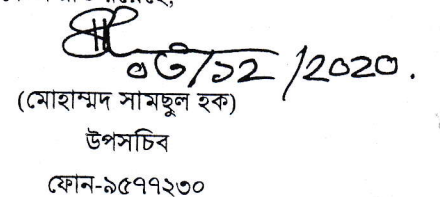 ০৩/১২/2020.
(মোহাম্মদ সামছুল হক)
উপসচিব
ফোন-৯৫৭৭২৩০